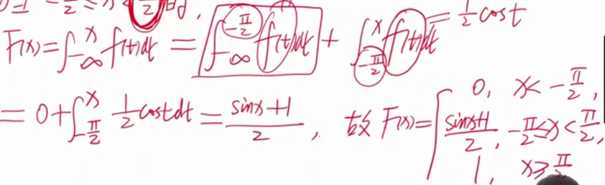 -π/2 ≤ x < π/2 时,
F(x) = ∫_{-∞}^{x} f(t)dt = ∫_{-∞}^{-π/2} f(t)dt + ∫_{-π/2}^{x} f(t)dt = 1/2 cost
= 0 + ∫_{-π/2}^{x} 1/2 cost dt = (sinx+1)/2 , 故 F(x) = { 0, x < -π/2,
(sinx+1)/2, -π/2 ≤ x < π/2,
1, x ≥ π/2